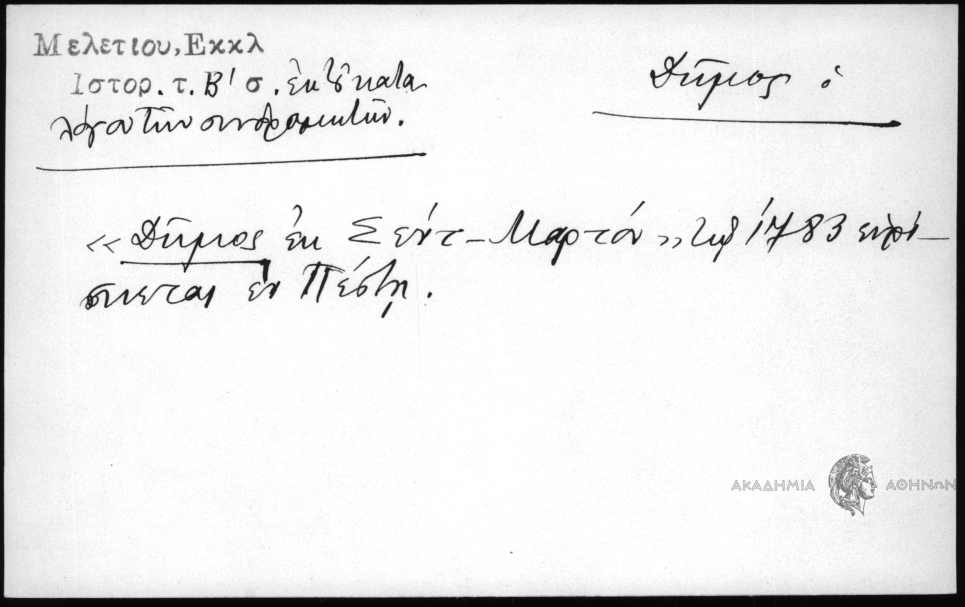 Μελετιου, Εκκλ
Ιστορ. τ. Β' σ. ἐκ τȣ͂ κατα
λόγου τῶν συνδρομητῶν.
Δῆμος ὁ
«Δῆμος ἐκ Σέντ-Μαρτόν» τῷ 1783 εὑρί-
σκεται ἐν Πέστῃ.
ΑΚΑΔΗΜΙΑ ΑΘΗΝΩΝ